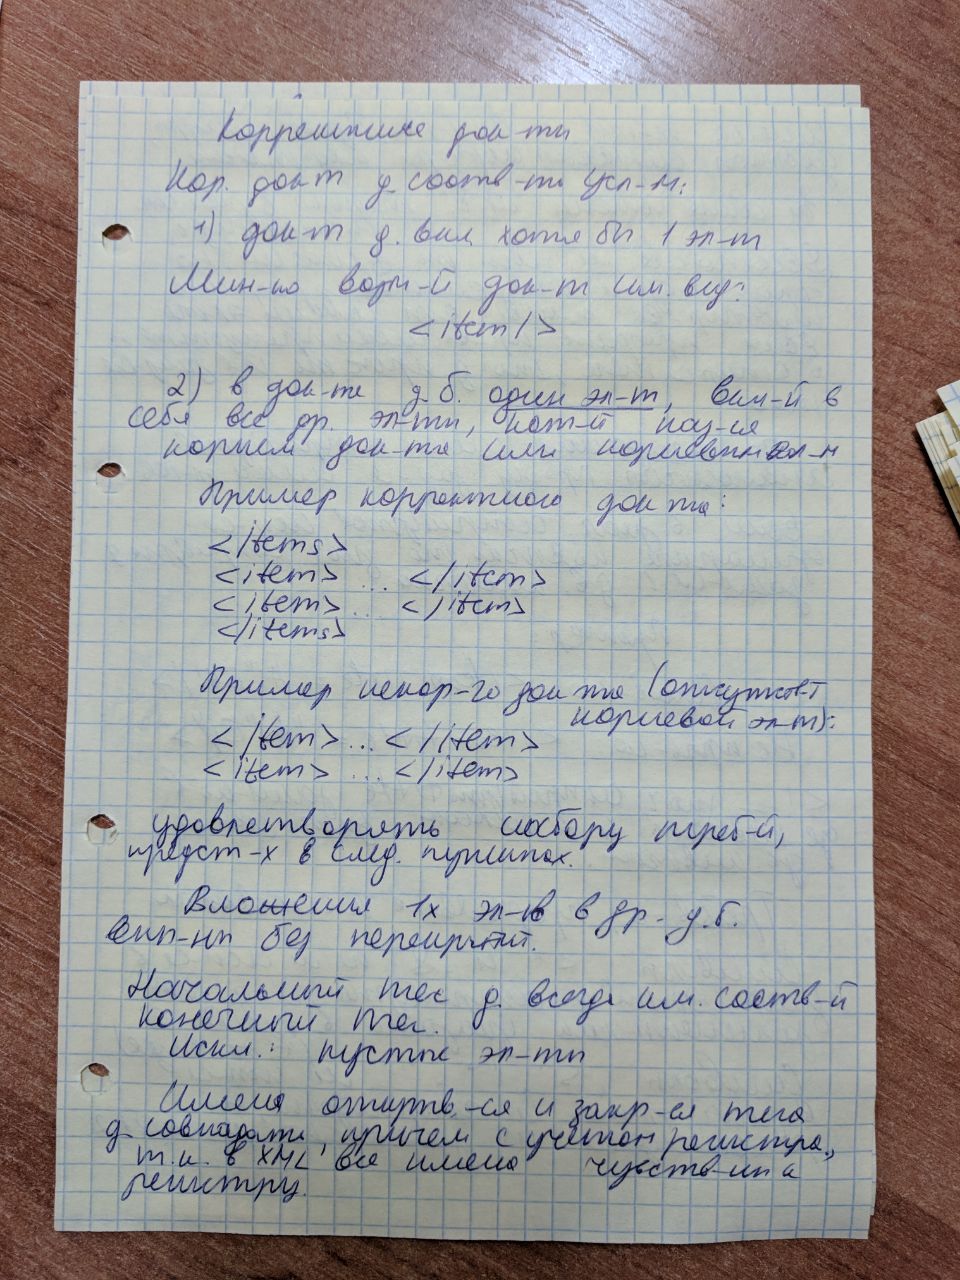 Корректные док-ты
Кор. док-т д. соотв-ть усл-м:
1) док-т д. вкл хотя бы 1 эл-т
Мин-но возм-й док-т им. вид:
<item/>
2) в док-те д.б. один эл-т, вкл-й в
себя все др. эл-ты, кот-й наз-ся
корнем док-та или корневым эл-м
Пример корректного док-та:
</items>
<item> ... </item>
<item> ... </item>
</items>
Пример некор-го док-та (отсутств-т
корневой эл-т):
</item> ... </item>
<item> ... </item>
удовлетворять набору треб-й,
предст-х в след. пунктах.
Вложения 1х эл-в в др. д.б.
вып-ны без перекрытий.
Начальный тег д. всегда им. соотв-й
конечный тег.
Искл.: пустые эл-ты
Имена открыв-ся и закр-ся тега
д. совпадать, причем с учетом регистра,
т.к. в XML все имена чувств-ны к
регистру.